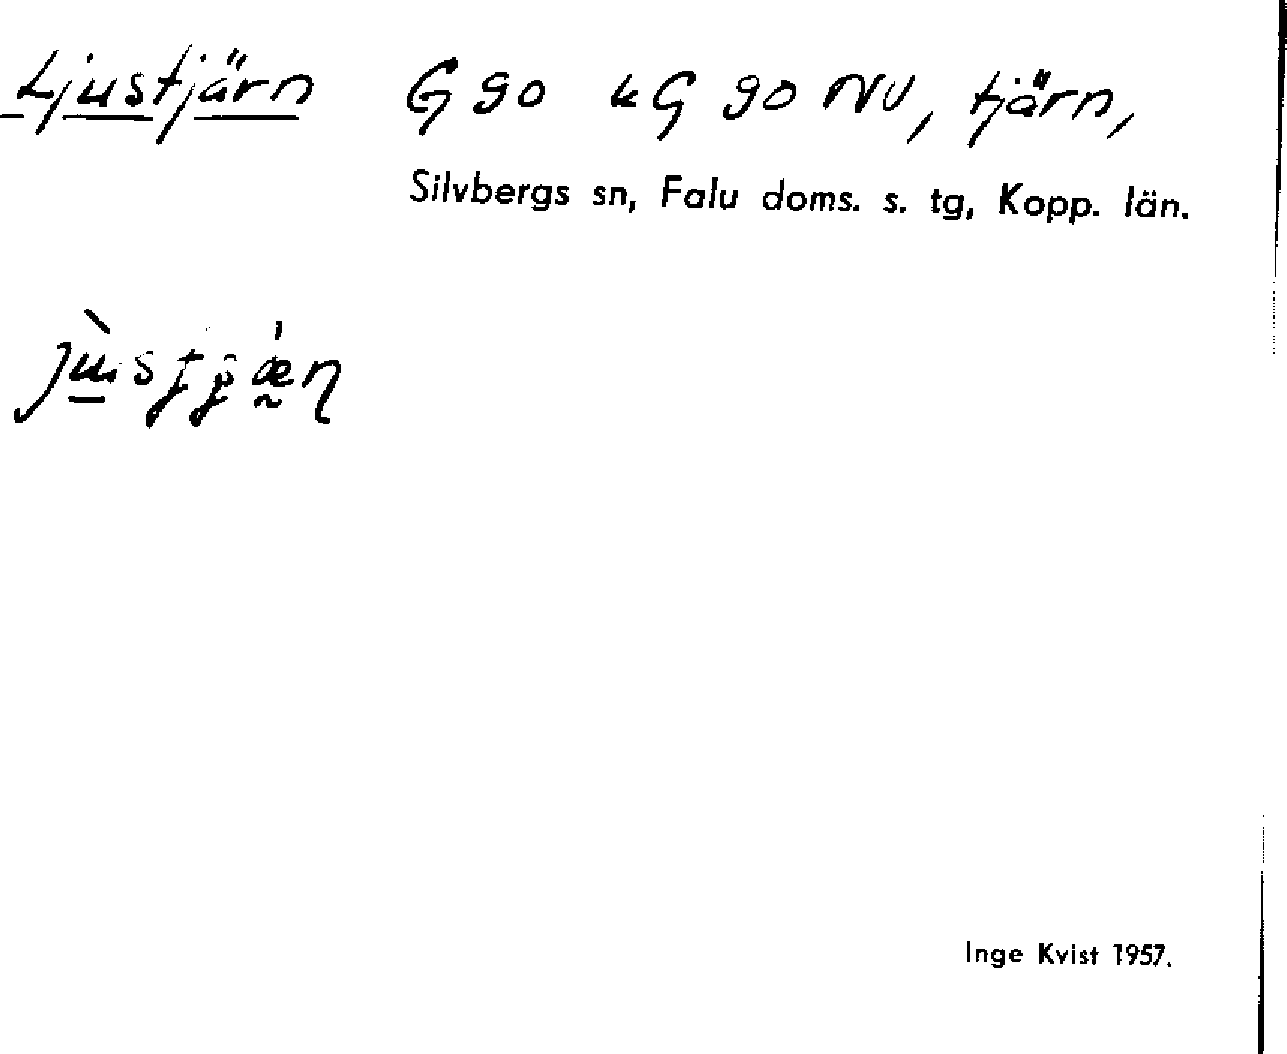 Ljustjärn G 90 kG 90 NV, tjärn,
Silvbergs sn, Falu doms. s. tg, Kopp. län.
Inge Kvist 1957.